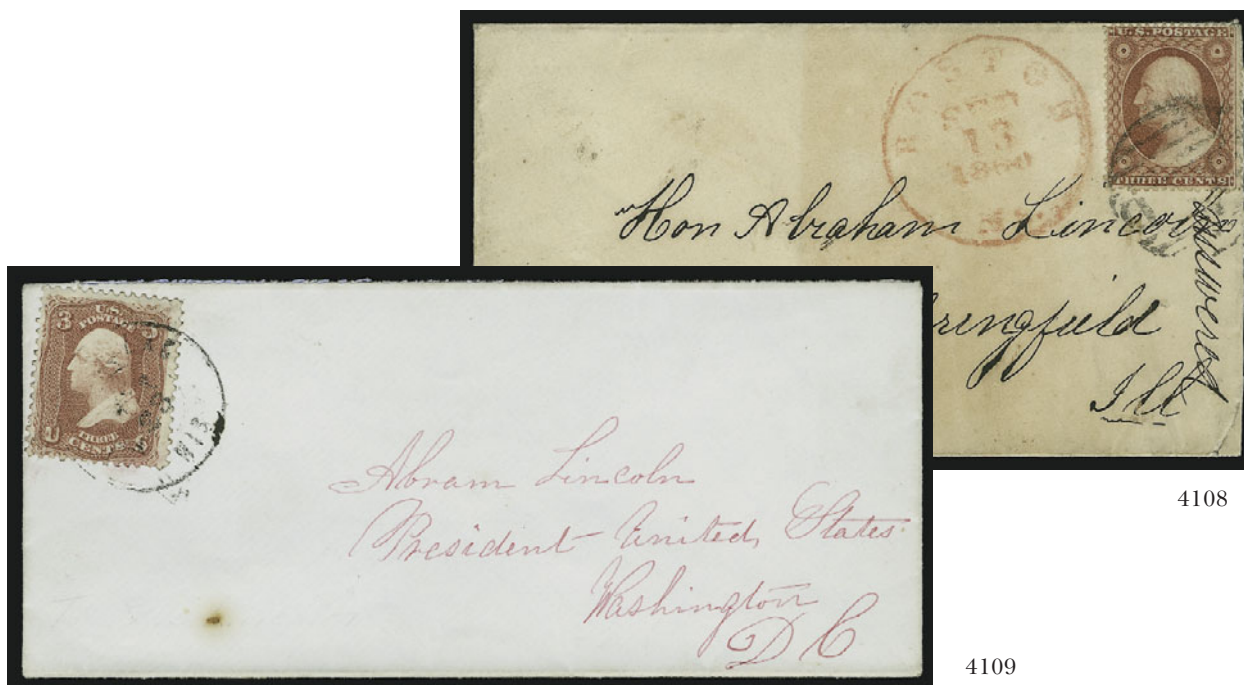 U.S. POSTAGE
THREE CENTS
BOSTON
SEP
13
1860
Hon Abraham Lincoln
Springfield
Ill
Answered
4108
3 U.S. 3
POSTAGE
THREE
CENTS
WIS
Abram Lincoln
President United States
Washington
D C
4109